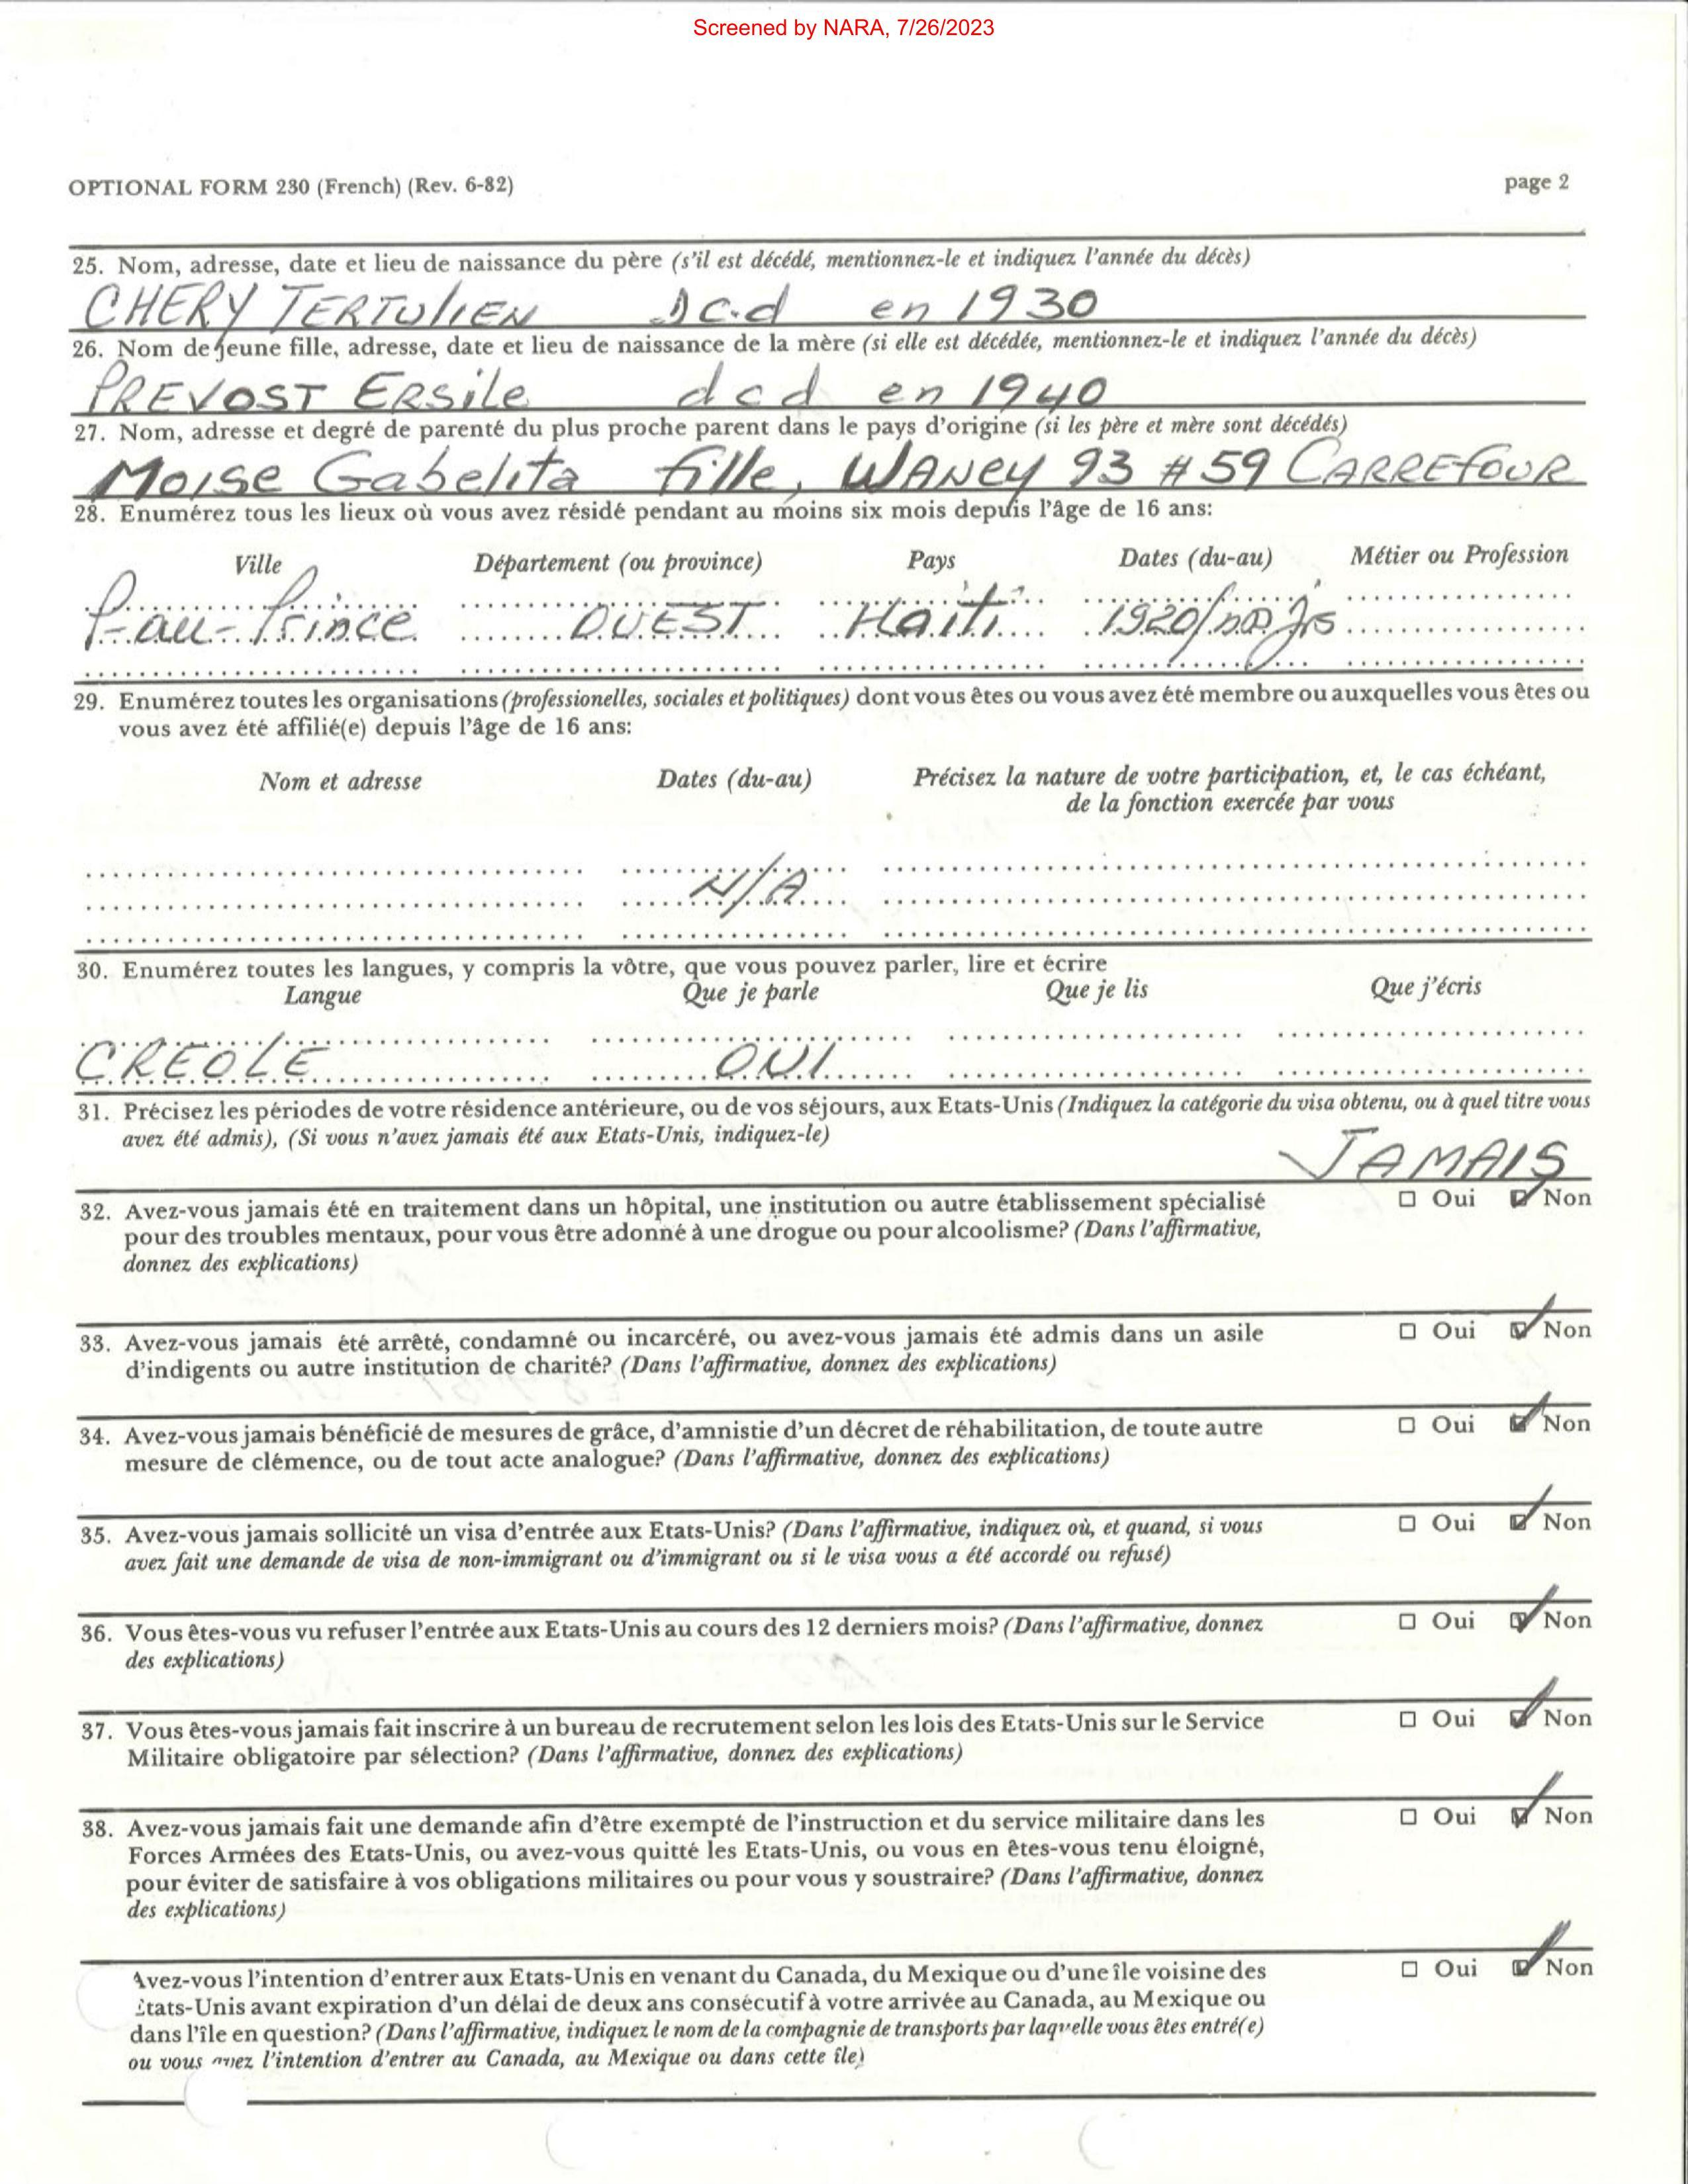 Screened by NARA, 7/26/2023
OPTIONAL FORM 230 (French) (Rev. 6-82) page 2
25. Nom, adresse, date et lieu de naissance du père (s'il est décédé, mentionnez-le et indiquez l'année du décès)
CHERY TERTULIEN Dc.d en 1930
26. Nom de jeune fille, adresse, date et lieu de naissance de la mère (si elle est décédée, mentionnez-le et indiquez l'année du décès)
PREVOST ERSILE dcd en 1940
27. Nom, adresse et degré de parenté du plus proche parent dans le pays d'origine (si les père et mère sont décédés)
MOISE Gabelita fille, WANEY 93 #59 CARREFOUR
28. Enumérez tous les lieux où vous avez résidé pendant au moins six mois depuis l'âge de 16 ans:
Ville Département (ou province) Pays Dates (du-au) Métier ou Profession
P-au-Prince OUEST Haiti 1920/nos jrs
29. Enumérez toutes les organisations (professionelles, sociales et politiques) dont vous êtes ou vous avez été membre ou auxquelles vous êtes ou
vous avez été affilié(e) depuis l'âge de 16 ans:
Nom et adresse Dates (du-au) Précisez la nature de votre participation, et, le cas échéant,
de la fonction exercée par vous
N/A
30. Enumérez toutes les langues, y compris la vôtre, que vous pouvez parler, lire et écrire
Langue Que je parle Que je lis Que j'écris
CREOLE OUI
31. Précisez les périodes de votre résidence antérieure, ou de vos séjours, aux Etats-Unis (Indiquez la catégorie du visa obtenu, ou à quel titre vous
avez été admis), (Si vous n'avez jamais été aux Etats-Unis, indiquez-le)
JAMAIS
32. Avez-vous jamais été en traitement dans un hôpital, une institution ou autre établissement spécialisé Oui Non
pour des troubles mentaux, pour vous être adonné à une drogue ou pour alcoolisme? (Dans l'affirmative,
donnez des explications)
33. Avez-vous jamais été arrêté, condamné ou incarcéré, ou avez-vous jamais été admis dans un asile Oui Non
d'indigents ou autre institution de charité? (Dans l'affirmative, donnez des explications)
34. Avez-vous jamais bénéficié de mesures de grâce, d'amnistie d'un décret de réhabilitation, de toute autre Oui Non
mesure de clémence, ou de tout acte analogue? (Dans l'affirmative, donnez des explications)
35. Avez-vous jamais sollicité un visa d'entrée aux Etats-Unis? (Dans l'affirmative, indiquez où, et quand, si vous Oui Non
avez fait une demande de visa de non-immigrant ou d'immigrant ou si le visa vous a été accordé ou refusé)
36. Vous êtes-vous vu refuser l'entrée aux Etats-Unis au cours des 12 derniers mois? (Dans l'affirmative, donnez Oui Non
des explications)
37. Vous êtes-vous jamais fait inscrire à un bureau de recrutement selon les lois des Etats-Unis sur le Service Oui Non
Militaire obligatoire par sélection? (Dans l'affirmative, donnez des explications)
38. Avez-vous jamais fait une demande afin d'être exempté de l'instruction et du service militaire dans les Oui Non
Forces Armées des Etats-Unis, ou avez-vous quitté les Etats-Unis, ou vous en êtes-vous tenu éloigné,
pour éviter de satisfaire à vos obligations militaires ou pour vous y soustraire? (Dans l'affirmative, donnez
des explications)
Avez-vous l'intention d'entrer aux Etats-Unis en venant du Canada, du Mexique ou d'une île voisine des Oui Non
Etats-Unis avant expiration d'un délai de deux ans consécutif à votre arrivée au Canada, au Mexique ou
dans l'île en question? (Dans l'affirmative, indiquez le nom de la compagnie de transports par laquelle vous êtes entré(e)
ou vous avez l'intention d'entrer au Canada, au Mexique ou dans cette île)